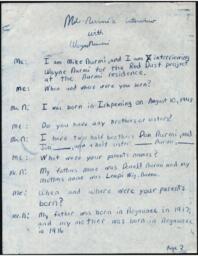 Mr. Nurmi's interview
with
Wayne Nurmi
Me: I am Mike Nurmi, and I am interviewing
Wayne Nurmi for the Red Dust project
at the Nurmi residence.
Me: When and where were you born?
Mr. N: I was born in Ishpeming on August 10, 1945
Me: Do you have any brothers or sisters?
Mr. N: I have two half brothers Dan Nurmi, and
Jim and a half sister Nurmi,
Me: What were your parents names?
Mr. N: My fathers name was Nurmi and my
mothers name was Nurmi.
Me: When and where were your parents
born?
Mr. N: My father was born in Negaunee in 1917,
and my mother was born in Negaunee
in 1916
Page